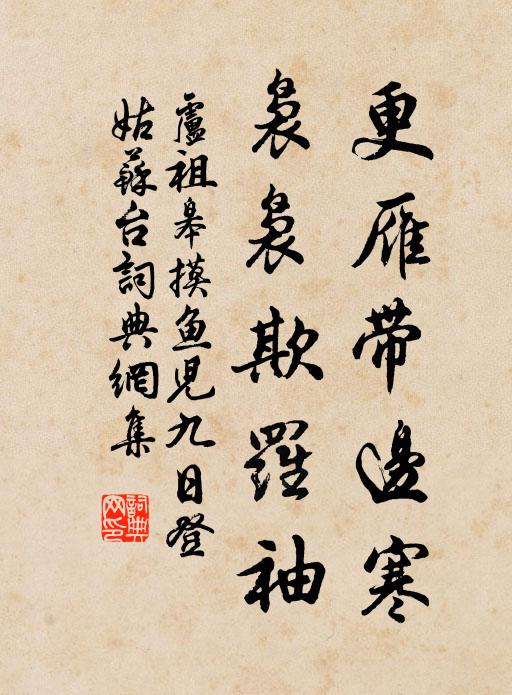 更雁带邊寒
袅袅欺羅袖
盧祖皋摸魚兒九日登
姑蘇台詞典網集
詞典网印